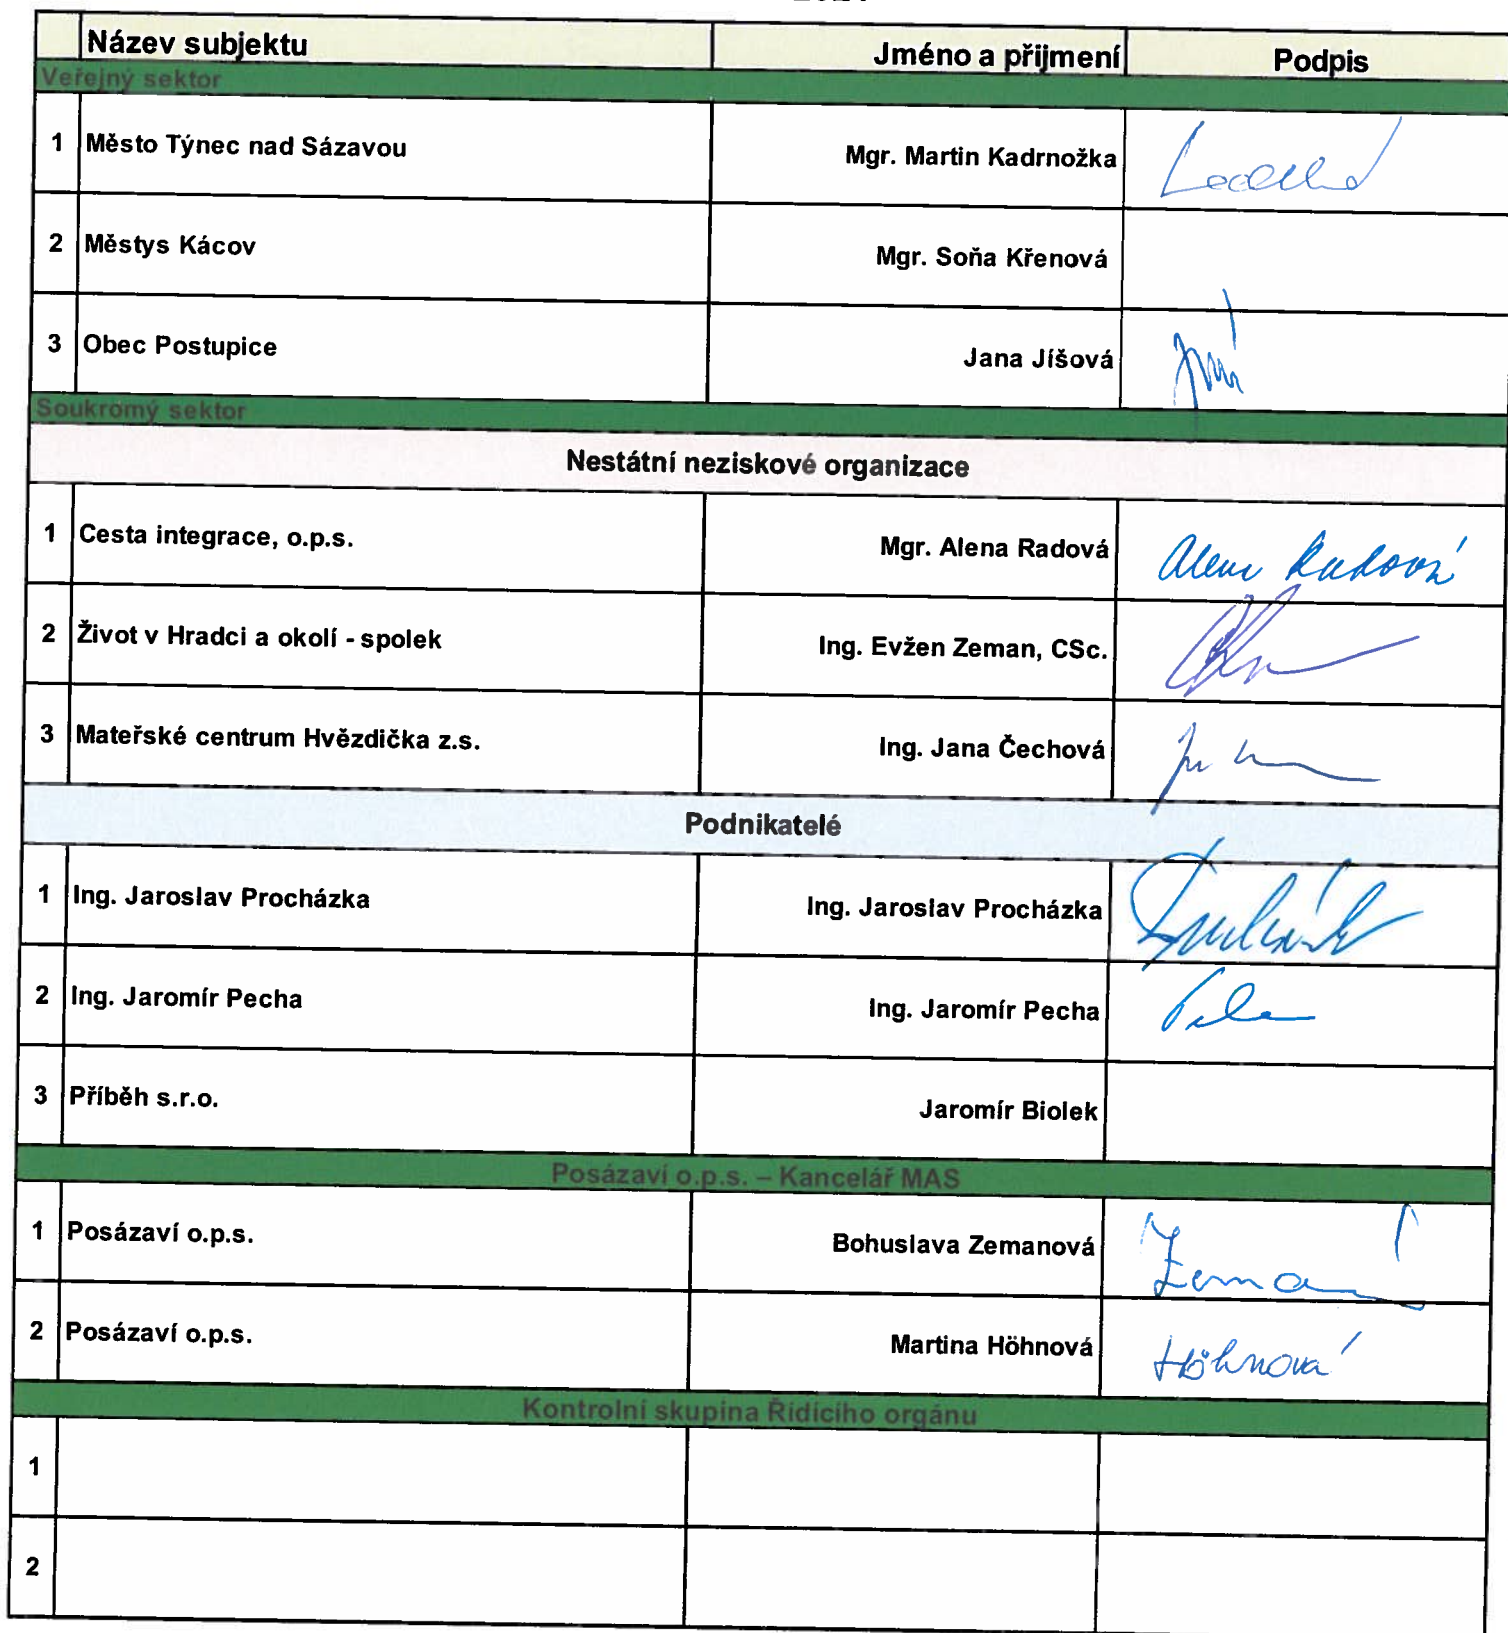 Název subjektu Jméno a přijmení Podpis
Veřejný sektor
1 Město Týnec nad Sázavou Mgr. Martin Kadrnožka
2 Městys Kácov Mgr. Soňa Křenová
3 Obec Postupice Jana Jíšová
Soukromý sektor
Nestátní neziskové organizace
1 Cesta integrace, o.p.s. Mgr. Alena Radová Alena Radová
2 Život v Hradci a okolí - spolek Ing. Evžen Zeman, CSc.
3 Mateřské centrum Hvězdička z.s. Ing. Jana Čechová
Podnikatelé
1 Ing. Jaroslav Procházka Ing. Jaroslav Procházka
2 Ing. Jaromír Pecha Ing. Jaromír Pecha
3 Příběh s.r.o. Jaromír Biolek
Posázaví o.p.s. – Kancelář MAS
1 Posázaví o.p.s. Bohuslava Zemanová
2 Posázaví o.p.s. Martina Höhnová Höhnová
Kontrolní skupina Řídícího orgánu
1
2